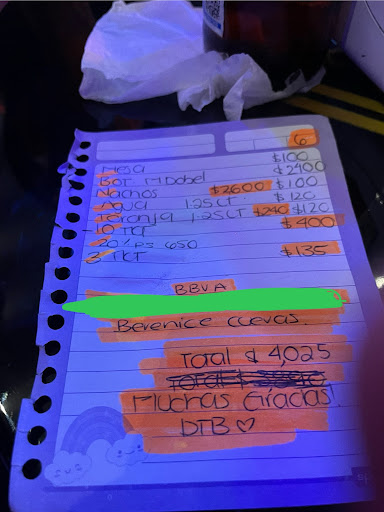 6
Mesa $100
Bot M Dobel $2400
Nachos $2600 $100
Agua 1.25LT $120
Toronja 1.25LT $240 $120
10 TQT $400
20% Des 650
3 TKT $135
BBVA
Berenice cuevas.
Toal $ 4,025
Muchas Gracias!
DTB ♡